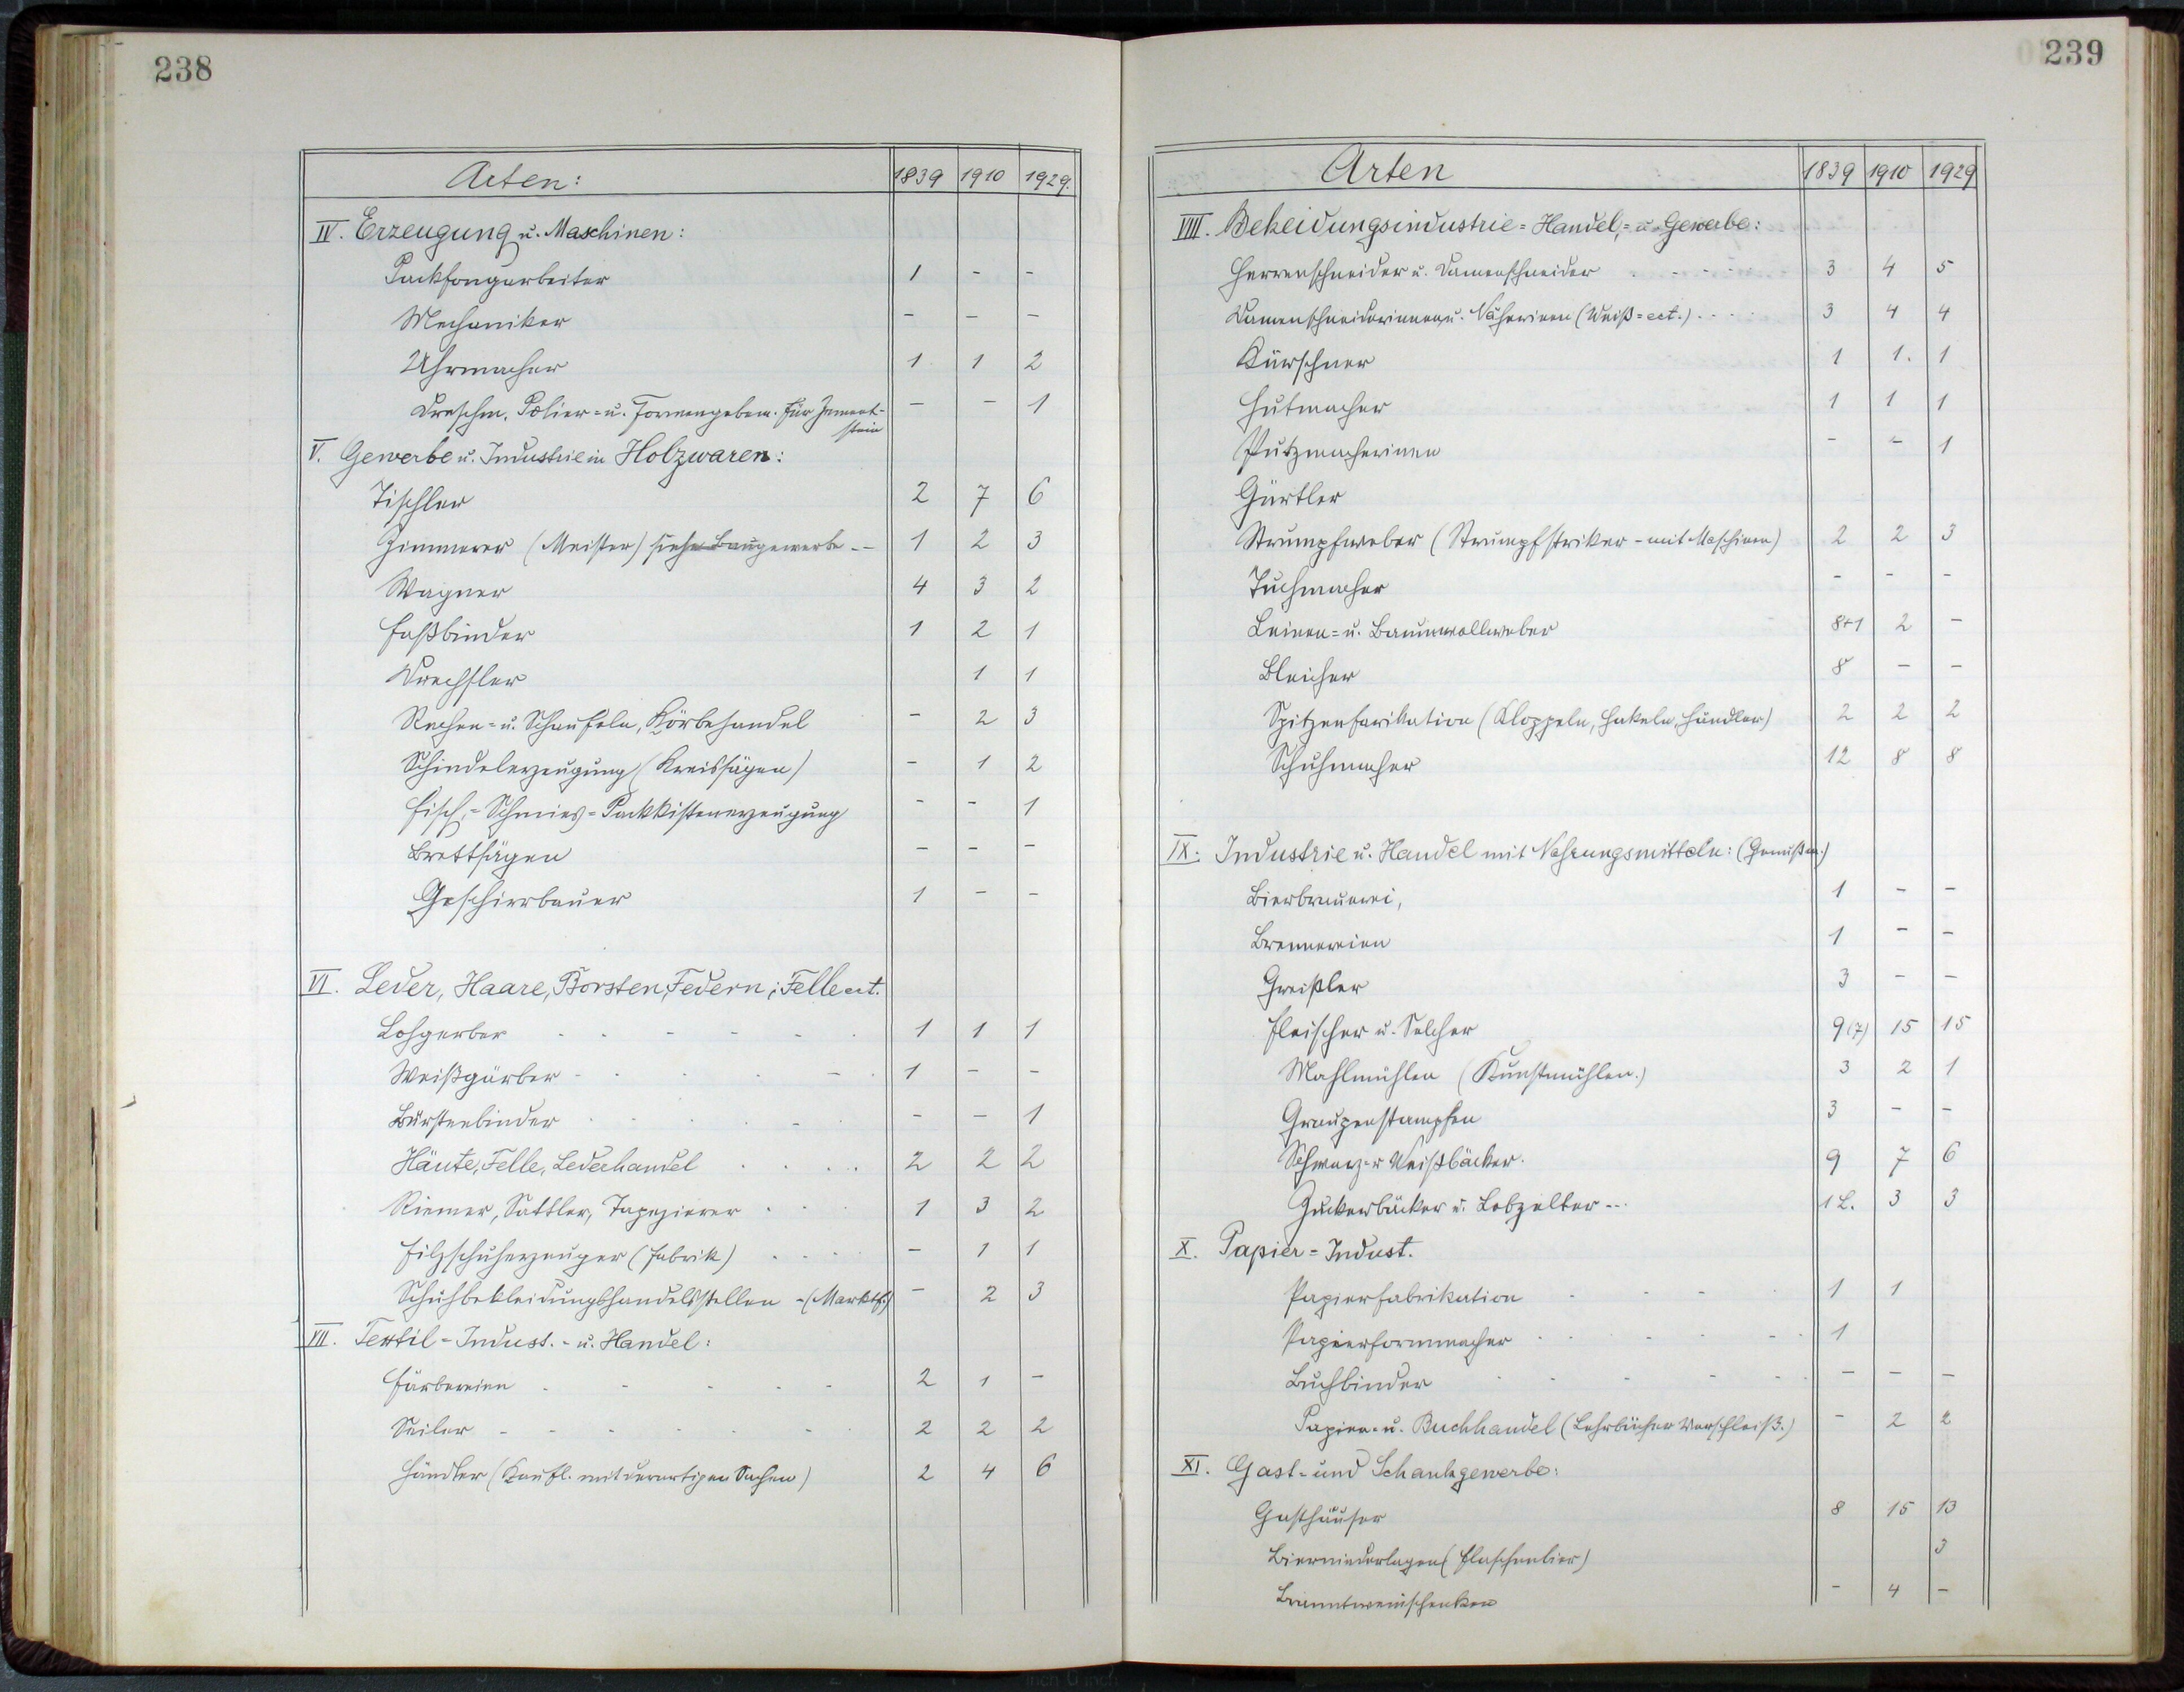 238
Arten: 1839 1910 1929.
IV. Erzeugung u. Maschinen:
Packfongarbeiter 1 - -
Mechaniker - - -
Uhrmacher 1 1 2
Dreschm. Polier= u. Formengebem. für Zement- - - 1
stein
V. Gewerbe u. Industrie in Holzwaren:
Tischler 2 7 6
Zimmerer (Meister) siehe Baugewerbe -- 1 2 3
Wagner 4 3 2
Faßbinder 1 2 1
Drechsler 1 1
Rechen= u. Schaufeln, Körbehandel - 2 3
Schindelerzeugung (Kreissägen) - 1 2
Fisch,= Packkistenerzeugung - - 1
Brettsägen - - -
Geschirrbauer 1 - -
VI. Leder, Haare, Borsten, Federn; Felle ect.
Lohgerber 1 1 1
Weißgärber 1 - -
Bürstenbinder - - 1
Häute, Felle, Lederhandel 2 2 2
Riemer, Sattler, Tapezierer 1 3 2
Filzschuherzeuger (Fabrik) - 1 1
Schuhbekleidungshandelsstellen -(Marktf.) - 2 3
VII. Textil=Indust.- u. Handel:
Färbereien 2 1 -
Seiler 2 2 2
Händler (Kaufl. mit derartigen Sachen) 2 4 6
239
Arten 1839 1910 1929
VIII. Bekeidungsindustrie=Handel,= u. Gewerbe:
Herrenschneider u. Damenschneider 3 4 5
Damenschneiderinnen u. Näherinen (Weiß=ect.) 3 4 4
Kürschner 1 1. 1
Hutmacher 1 1 1
Putzmacherinen - - 1
Gürtler
Strumpfweber (Strumpfstriker - mit Maschinen) 2 2 3
Tuchmacher - - -
Leinen= u. Baumwollweber 8+1 2 -
Bleicher 8 - -
Spitzenfarikation (Kloppeln, Hakeln, Händler) 2 2 2
Schuhmacher 12 8 8
IX. Industrie u. Handel mit Nahrungsmitteln: (Genußm.)
Bierbrauerei, 1 - -
Brennereien 1 - -
Greißler 3 - -
Fleischer u. Selcher 9(7) 15 15
Mahlmühlen (Kunstmühlen.) 3 2 1
Graupenstampfen 3 - -
Schwarz= u Weißbäcker. 9 7 6
Zuckerbäcker u. Lebzelter --- 1 L. 3 3
X. Papier=Indust.
Papierfabrikation 1 1
Papierformmacher 1
Buchbinder - - -
Papier= u. Buchhandel (Lehrbücher Verschleiß.) - 2 2
XI. Gast- und Schankgewerbe:
Gasthäuser 8 15 13
Bierniederlagen (Flaschenbier) 3
Branntweinschenken - 4 -